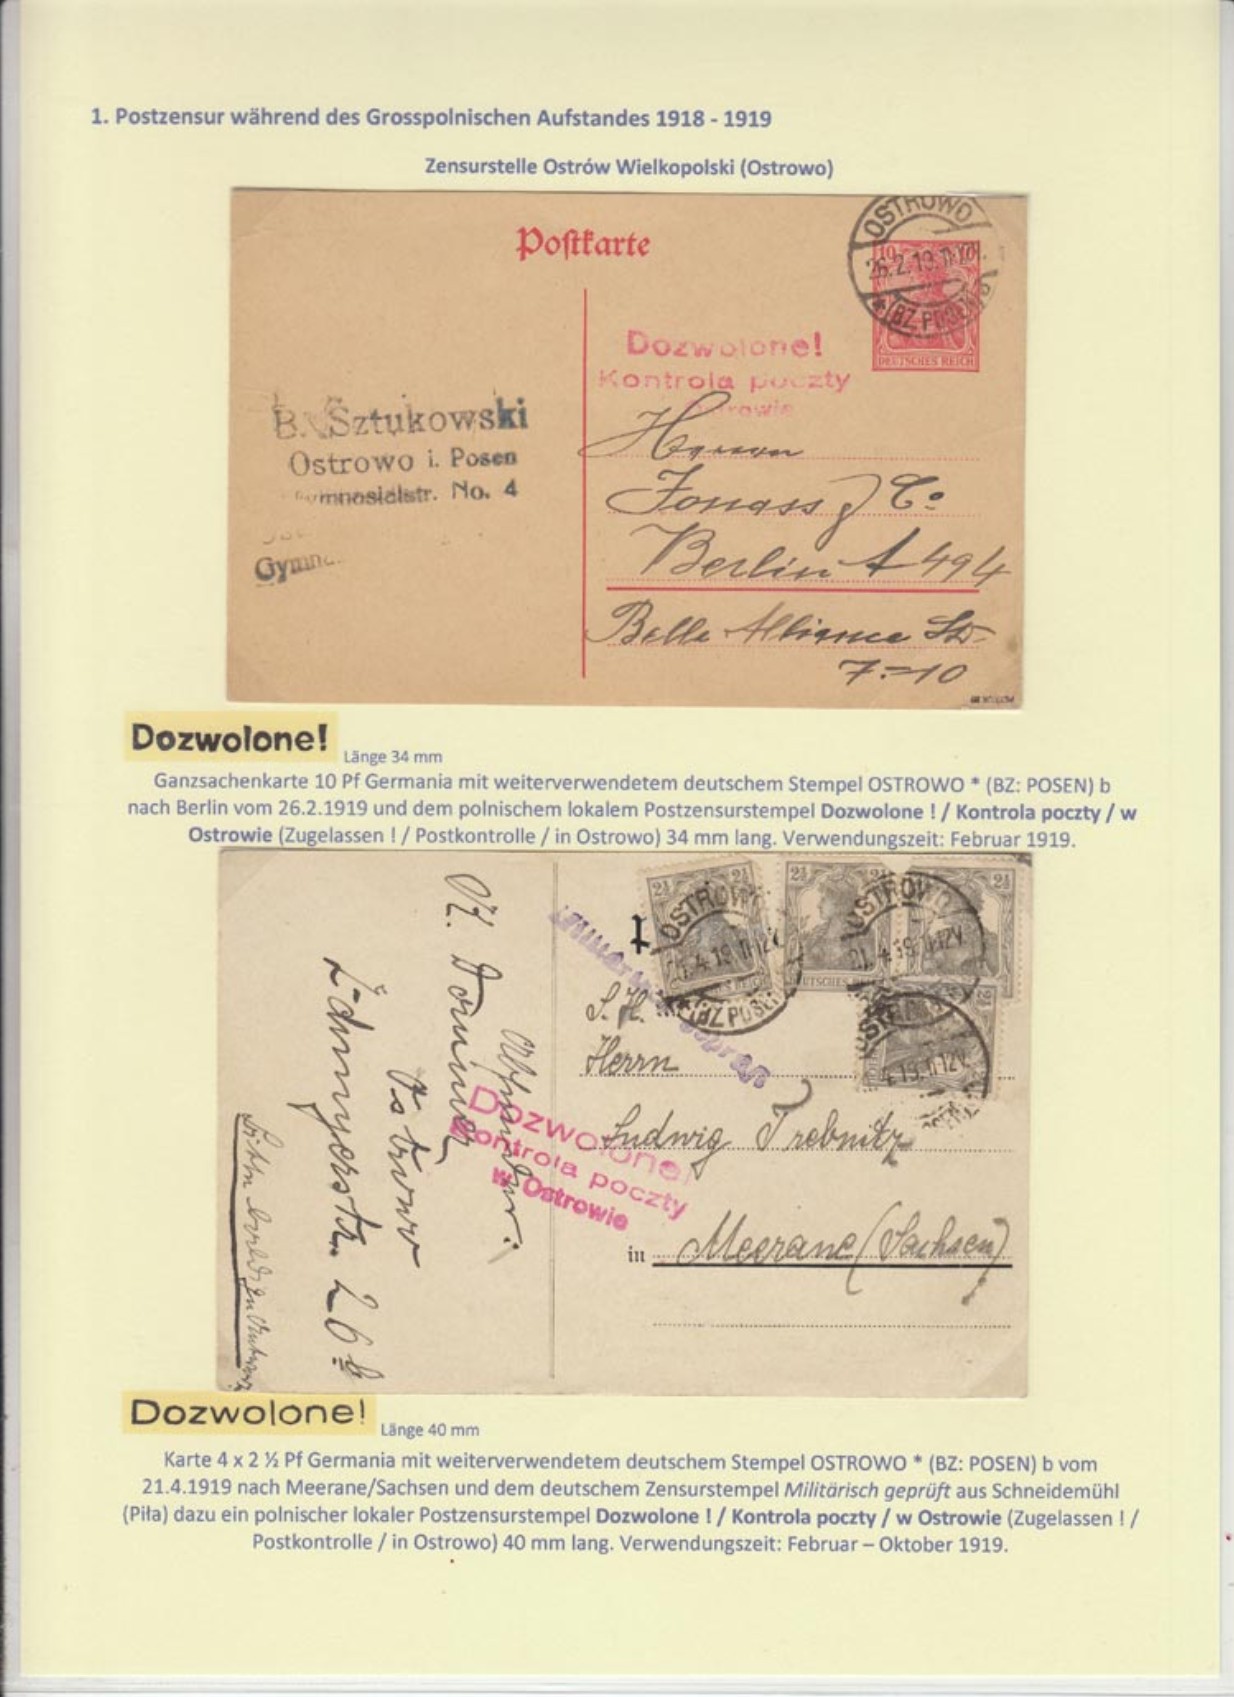 1. Postzensur während des Grosspolnischen Aufstandes 1918 - 1919
Zensurstelle Ostrów Wielkopolski (Ostrowo)
Postkarte
OSTROWO
26.2.19.11-12V.
* (BZ. POSEN) b
10 10
DEUTSCHES REICH
Dozwolone!
Kontrola poczty
Ostrowie
B. Sztukowski
Ostrowo i. Posen
Gymnasialstr. No. 4
Gymna
Herren
Jonass & Co
Berlin A 494
Belle Alliance Str
7-10
Dozwolone!
Länge 34 mm
Ganzsachenkarte 10 Pf Germania mit weiterverwendetem deutschem Stempel OSTROWO * (BZ: POSEN) b
nach Berlin vom 26.2.1919 und dem polnischem lokalem Postzensurstempel Dozwolone ! / Kontrola poczty / w
Ostrowie (Zugelassen ! / Postkontrolle / in Ostrowo) 34 mm lang. Verwendungszeit: Februar 1919.
2½ 2½ 2½
OSTROWO OSTROWO
21.4.19.11-12V. 21.4.19.11-12V.
DEUTSCHES REICH
(BZ POSEN)
4.19.11-12V.
Militärisch geprüft
S. H.
Herrn
Ludwig Trebnitz
in Meerane (Sachsen)
Dozwolone!
Kontrola poczty
w Ostrowie
Ostrowo
26
Dozwolone!
Länge 40 mm
Karte 4 x 2 ½ Pf Germania mit weiterverwendetem deutschem Stempel OSTROWO * (BZ: POSEN) b vom
21.4.1919 nach Meerane/Sachsen und dem deutschem Zensurstempel Militärisch geprüft aus Schneidemühl
(Piła) dazu ein polnischer lokaler Postzensurstempel Dozwolone ! / Kontrola poczty / w Ostrowie (Zugelassen ! /
Postkontrolle / in Ostrowo) 40 mm lang. Verwendungszeit: Februar – Oktober 1919.